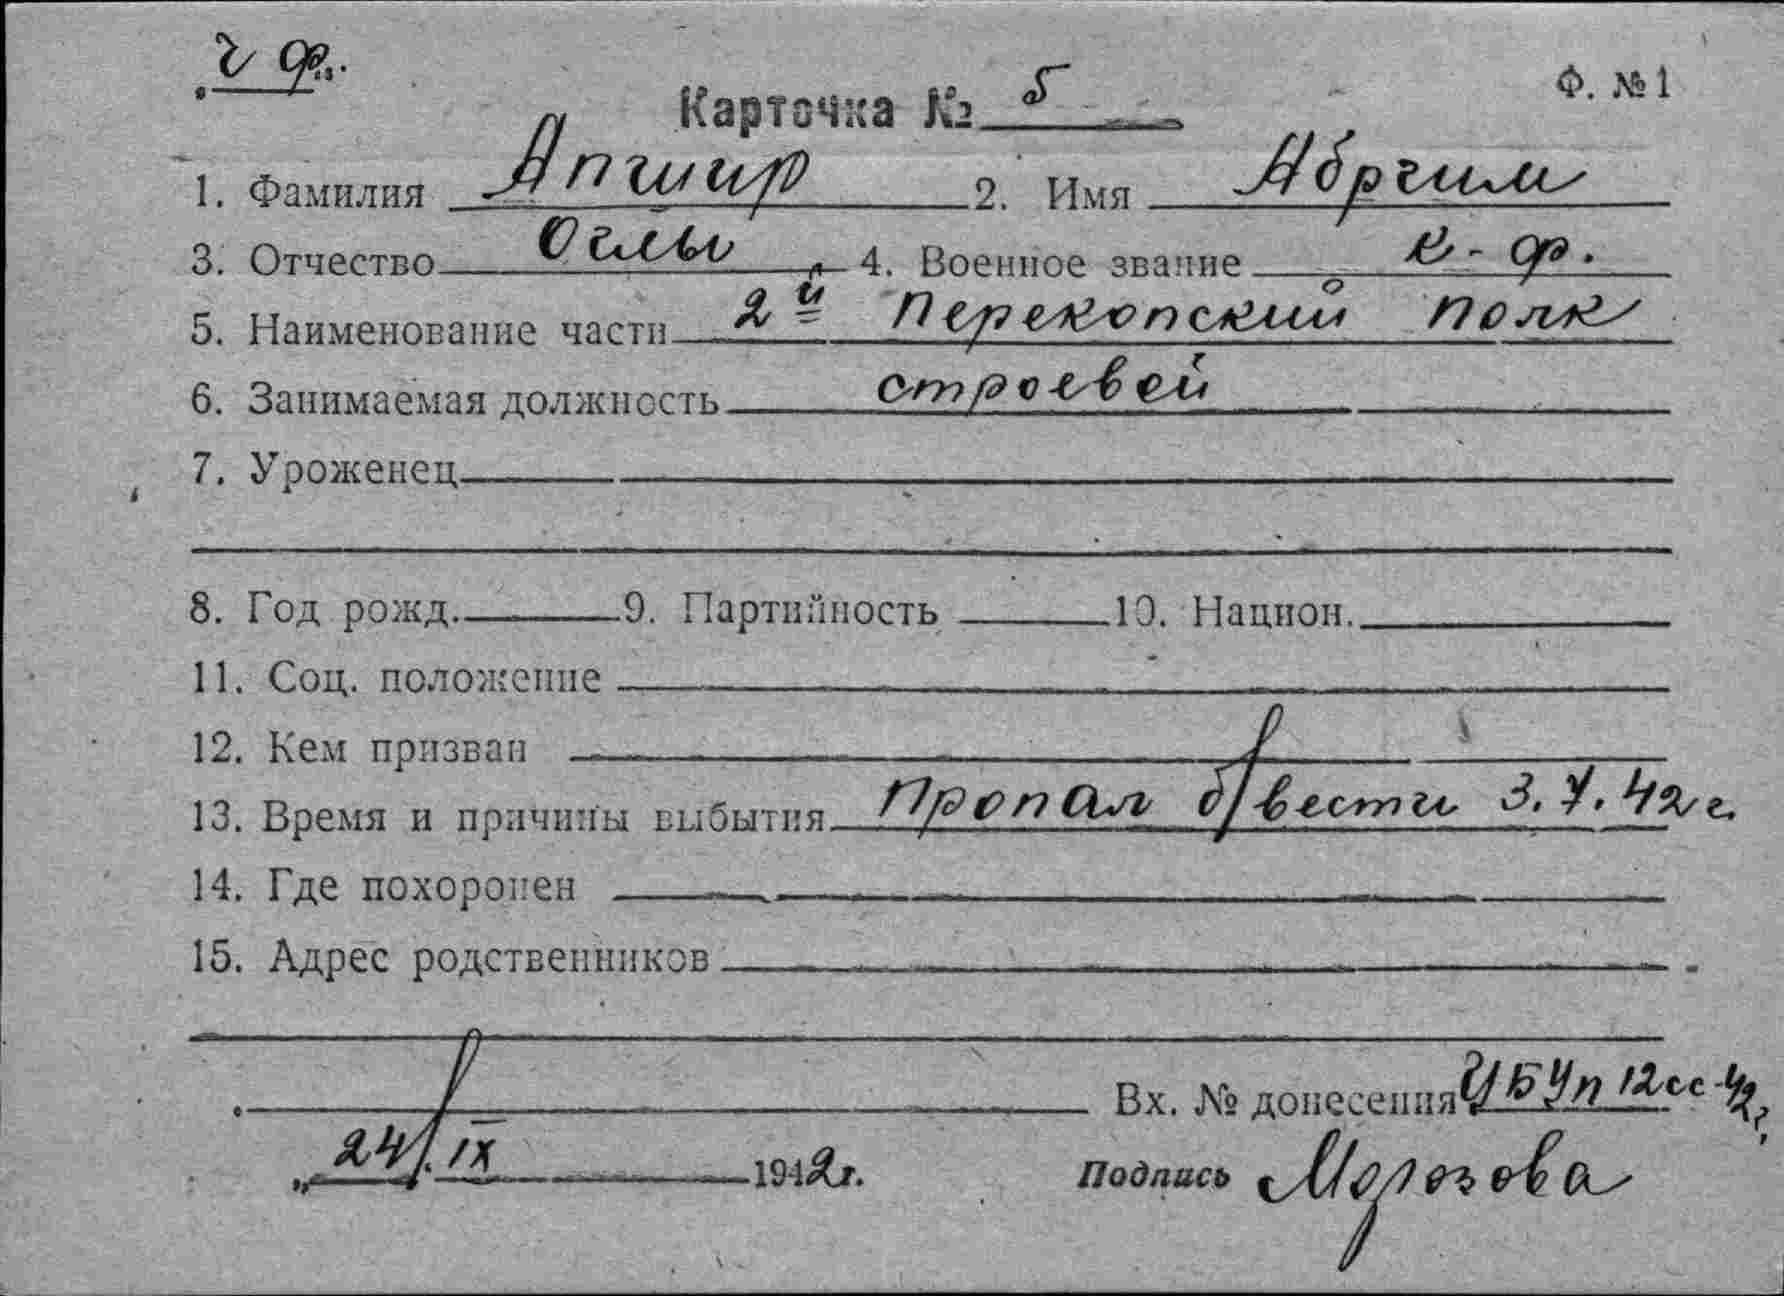 ч ф.
Ф. №1
Карточка № 5
1. Фамилия Апшир 2. Имя Абргим
3. Отчество Оглы 4. Военное звание к-ф.
5. Наименование части 2й Перекопский полк
6. Занимаемая должность строевой
7. Уроженец
8. Год рожд. 9. Партийность 10. Национ.
11. Соц. положение
12. Кем призван
13. Время и причины выбытия Пропал б/вести 3.V.42 г.
14. Где похоронен
15. Адрес родственников
Вх. № донесения ЦБУп 12сс-42г
„24/IX 1942г. Подпись Морозова